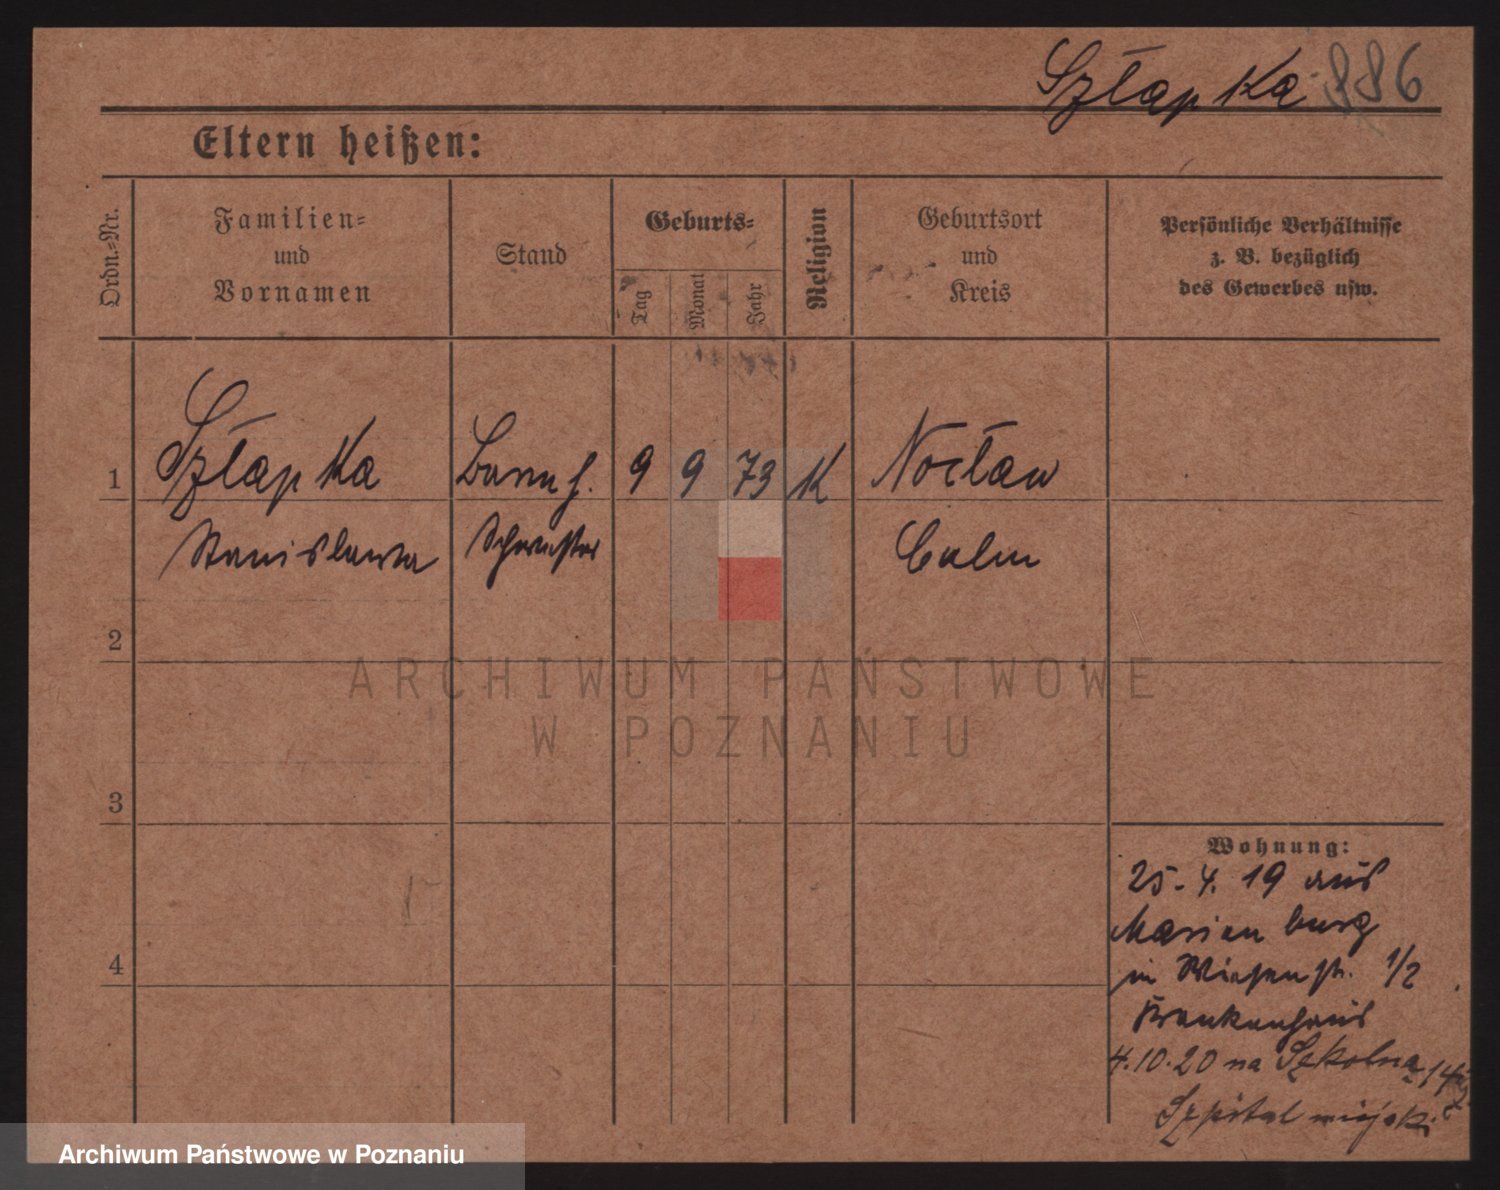 Szłapka 886
Eltern heißen:
Ordn.=Nr.
Familien=
und
Vornamen
Stand
Geburts=
Tag
Monat
Jahr
Religion
Geburtsort
und
Kreis
Persönliche Verhältnisse
z. B. bezüglich
des Gewerbes usw.
1 Szłapka Barmh. 9 9 73 K Nocław
Stanislawa Schwester Culm
2
ARCHIWUM PAŃSTWOWE
W POZNANIU
3
Wohnung:
25.4.19 aus
Marienburg
in Wiesenstr. 1/2
Krankenhaus
4.10.20 na Szkolna
Szpital miejski
4
Archiwum Państwowe w Poznaniu